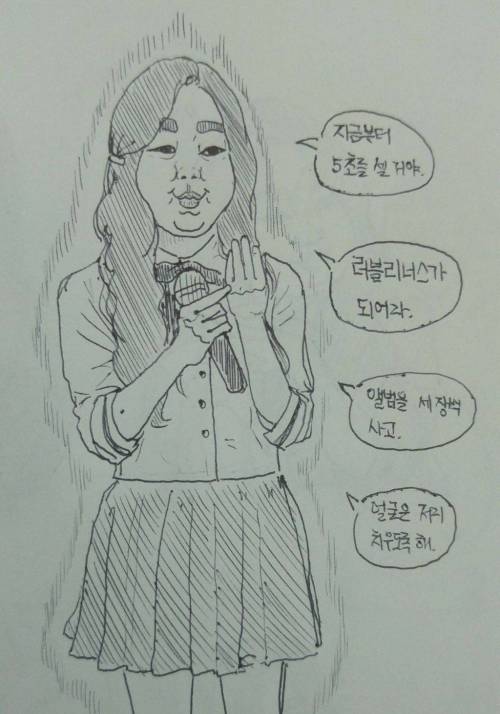 지금부터
5초를 셀 거야.
러블리너스가
되어라.
앨범을 세 장씩
사고.
얼굴은 저리
치우도록 해.